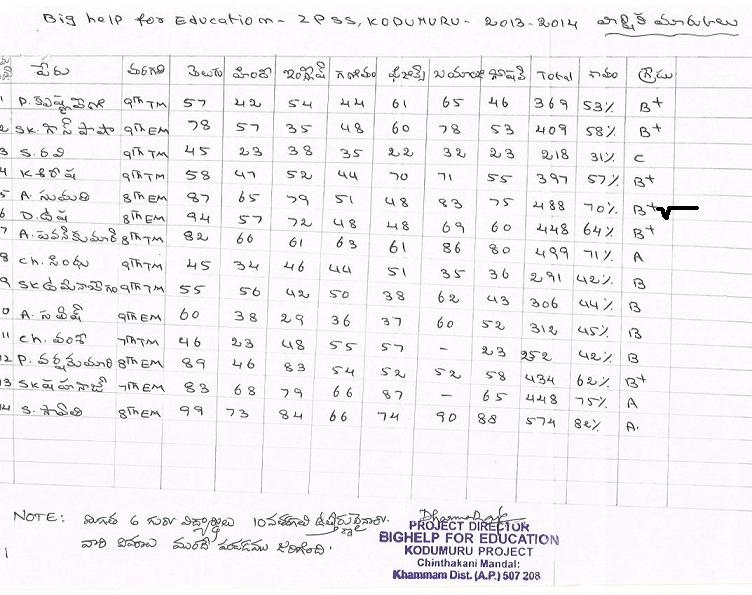 Big help for Education - ZPSS, KODUMURU - 2013-2014 వార్షిక మార్కులు
పేరు తరగతి తెలుగు హిందీ ఇంగ్లీష్ గణితం ఫిజిక్స్ బయాలజీ సోషల్ Total శాతం గ్రేడు
1 P. 9th TM 57 42 54 44 61 65 46 369 53% B+
2 SK. 9th EM 78 57 35 48 60 78 53 409 58% B+
3 S. రవి 9th TM 45 23 38 35 22 32 23 218 31% C
4 K. శిరీష 9th TM 58 47 52 44 70 71 55 397 57% B+
5 A. సుమతి 8th EM 87 65 79 51 48 83 75 488 70% B+
6 D. ఉష 8th EM 94 57 72 48 48 69 60 448 64% B+
7 A. 8th TM 82 66 61 63 61 86 80 499 71% A
8 Ch. సింధు 9th TM 45 34 46 44 51 35 36 291 42% B
9 SK. 9th TM 55 56 42 50 38 62 43 306 44% B
10 A. 9th EM 60 38 29 36 37 60 52 312 45% B
11 Ch. 7th TM 46 23 48 55 57 - 23 252 42% B
12 P. 8th EM 89 46 83 54 52 52 58 434 62% B+
13 SK. 7th EM 83 68 79 66 87 - 65 448 75% A
14 S. 8th EM 99 73 84 66 74 90 88 574 82% A.
NOTE: మిగతా 6 గురు విద్యార్థులు 10వ తరగతి ఉత్తీర్ణులైనారు.
వారి వివరాలు ముందే పంపడము జరిగింది.
PROJECT DIRECTOR
BIGHELP FOR EDUCATION
KODUMURU PROJECT
Chinthakani Mandal:
Khammam Dist. (A.P.) 507 208